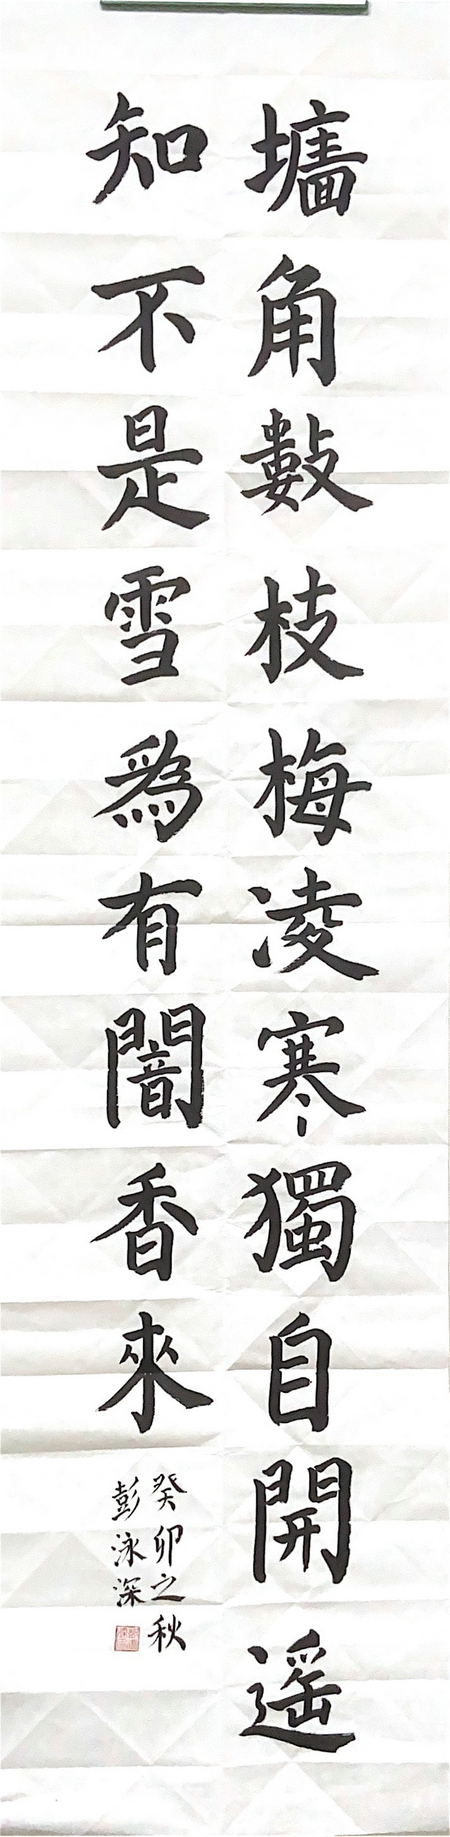 墻角數枝梅凌寒獨自開遥
知不是雪為有闇香來
癸卯之秋
彭泳深